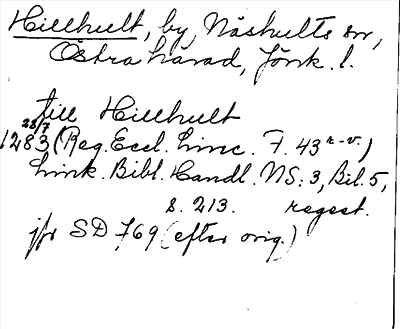 Hillhult, by, Näshults sn,
Östra härad, Jönk. l.
till Hillhult
28/7
1283 (Reg. Eccl. Linc. F. 43 r-v.)
Link. Bibl. Handl. NS: 3, Bil. 5,
s. 213. regest.
jfr SD 769 (efter orig.)